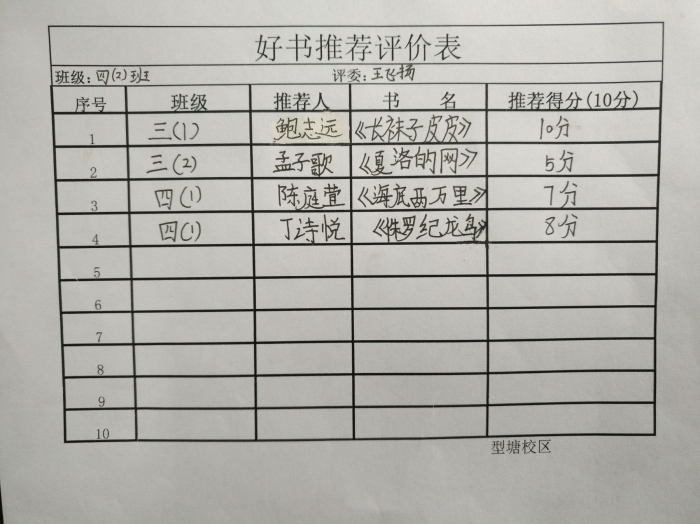 好书推荐评价表
班级：四(2)班 评委：王飞扬
序号 班级 推荐人 书名 推荐得分(10分)
1 三(1) 鲍志远 《长袜子皮皮》 10分
2 三(2) 孟子歌 《夏洛的网》 5分
3 四(1) 陈庭萱 《海底两万里》 7分
4 四(1) 丁诗悦 《侏罗纪龙鸟》 8分
5
6
7
8
9
10
型塘校区